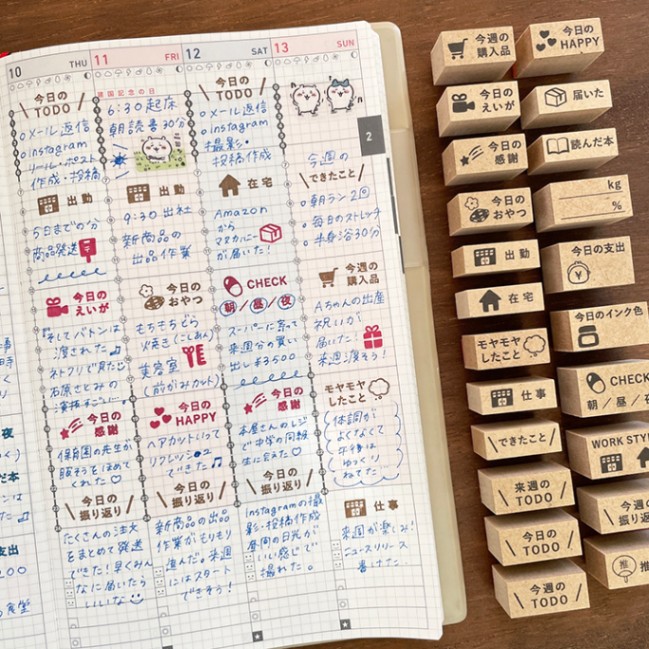 10 THU
今日の
TODO
○メール返信
○Instagram
リール・ポスト
作成・投稿
出勤
5日までの分
商品発送
今日の
えいが
『そしてバトンは
渡された』
ネトフリで見た
石原さとみの
今日の
感謝
保育園の先生が
服そうをほめて
くれた♡
今日の
振り返り
たくさんの注文
をまとめて発送
できた！早くみん
なに届いたら
いいな
11 FRI
建国記念の日
6:30起床
朝読書30分
出勤
9:30出社
新商品の
出品作業
今日の
おやつ
もちもちどら
焼き(こしあん)
美容室
(前がみカット)
今日の
HAPPY
ヘアカットいって
リフレッシュ
できた♫
今日の
振り返り
新商品の出品
作業がモリモリ
進んだ。来週
にはスタート
できそう！
12 SAT
今日の
TODO
○メール返信
○Instagram
撮影・
投稿作成
在宅
Amazon
から
マヌカハニー
が届いた！
CHECK
朝/昼/夜
スーパーに寄って
来週分の買い
出し¥3500
今日の
感謝
本屋さんのレジ
で中学の同級
生に会えた♡
今日の
振り返り
Instagramの撮
影・投稿作成
昼間の日光が
いい感じで
撮れた。
13 SUN
今週の
できたこと
○朝ラン2回
○毎日のストレッチ
○半身浴30分
今週の
購入品
Aちゃんの出産
祝いが
届いた！
来週渡そう！
モヤモヤ
したこと
体調が
よくなくて
午後は
ゆっくり
ねてた
仕事
来週が楽しみ！
ニュースリリース
書けた
2
今週の
購入品
今日の
HAPPY
今日の
えいが
届いた
今日の
感謝
読んだ本
今日の
おやつ
kg
%
出勤
今日の支出
在宅
今日のインク色
モヤモヤ
したこと
CHECK
朝/昼/夜
仕事
できたこと
WORK STY
来週の
TODO
今週の
振り返
今日の
TODO
推
今週の
TODO